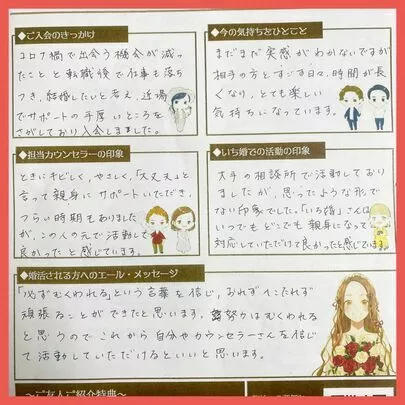 ◆ご入会のきっかけ
コロナ禍で出会う機会が減っ
たことと転職後で仕事も落ち
つき、結婚したいと考え、近場
でサポートの手厚いところを
さがしており入会しました。
◆今の気持ちをひとこと
まだまだ実感がわかないですが
相手の方とすごす日々、時間が長
くなり、とても楽しい
気持ちになっています。
◆担当カウンセラーの印象
ときにキビしく、やさしく、「大丈夫」と
言って親身にサポートいただき、
つらい時期もありました
が、この人の元で活動して
良かったと感じています。
◆いち婚での活動の印象
大手の相談所で活動しており
ましたが、思ったような形で
ない印象でした。「いち婚」さんは
いつでもどこでも親身になって
対応していただけて良かったと感じています。
◆婚活される方へのエール・メッセージ
「必ずむくわれる」という言葉を信じ、おれずへこたれず
頑張ることができたと思います。努力はむくわれる
と思うのでこれから自分やカウンセラーさんを信じ
て活動していただけるといいと思います。
〜ご友人ご紹介特典〜